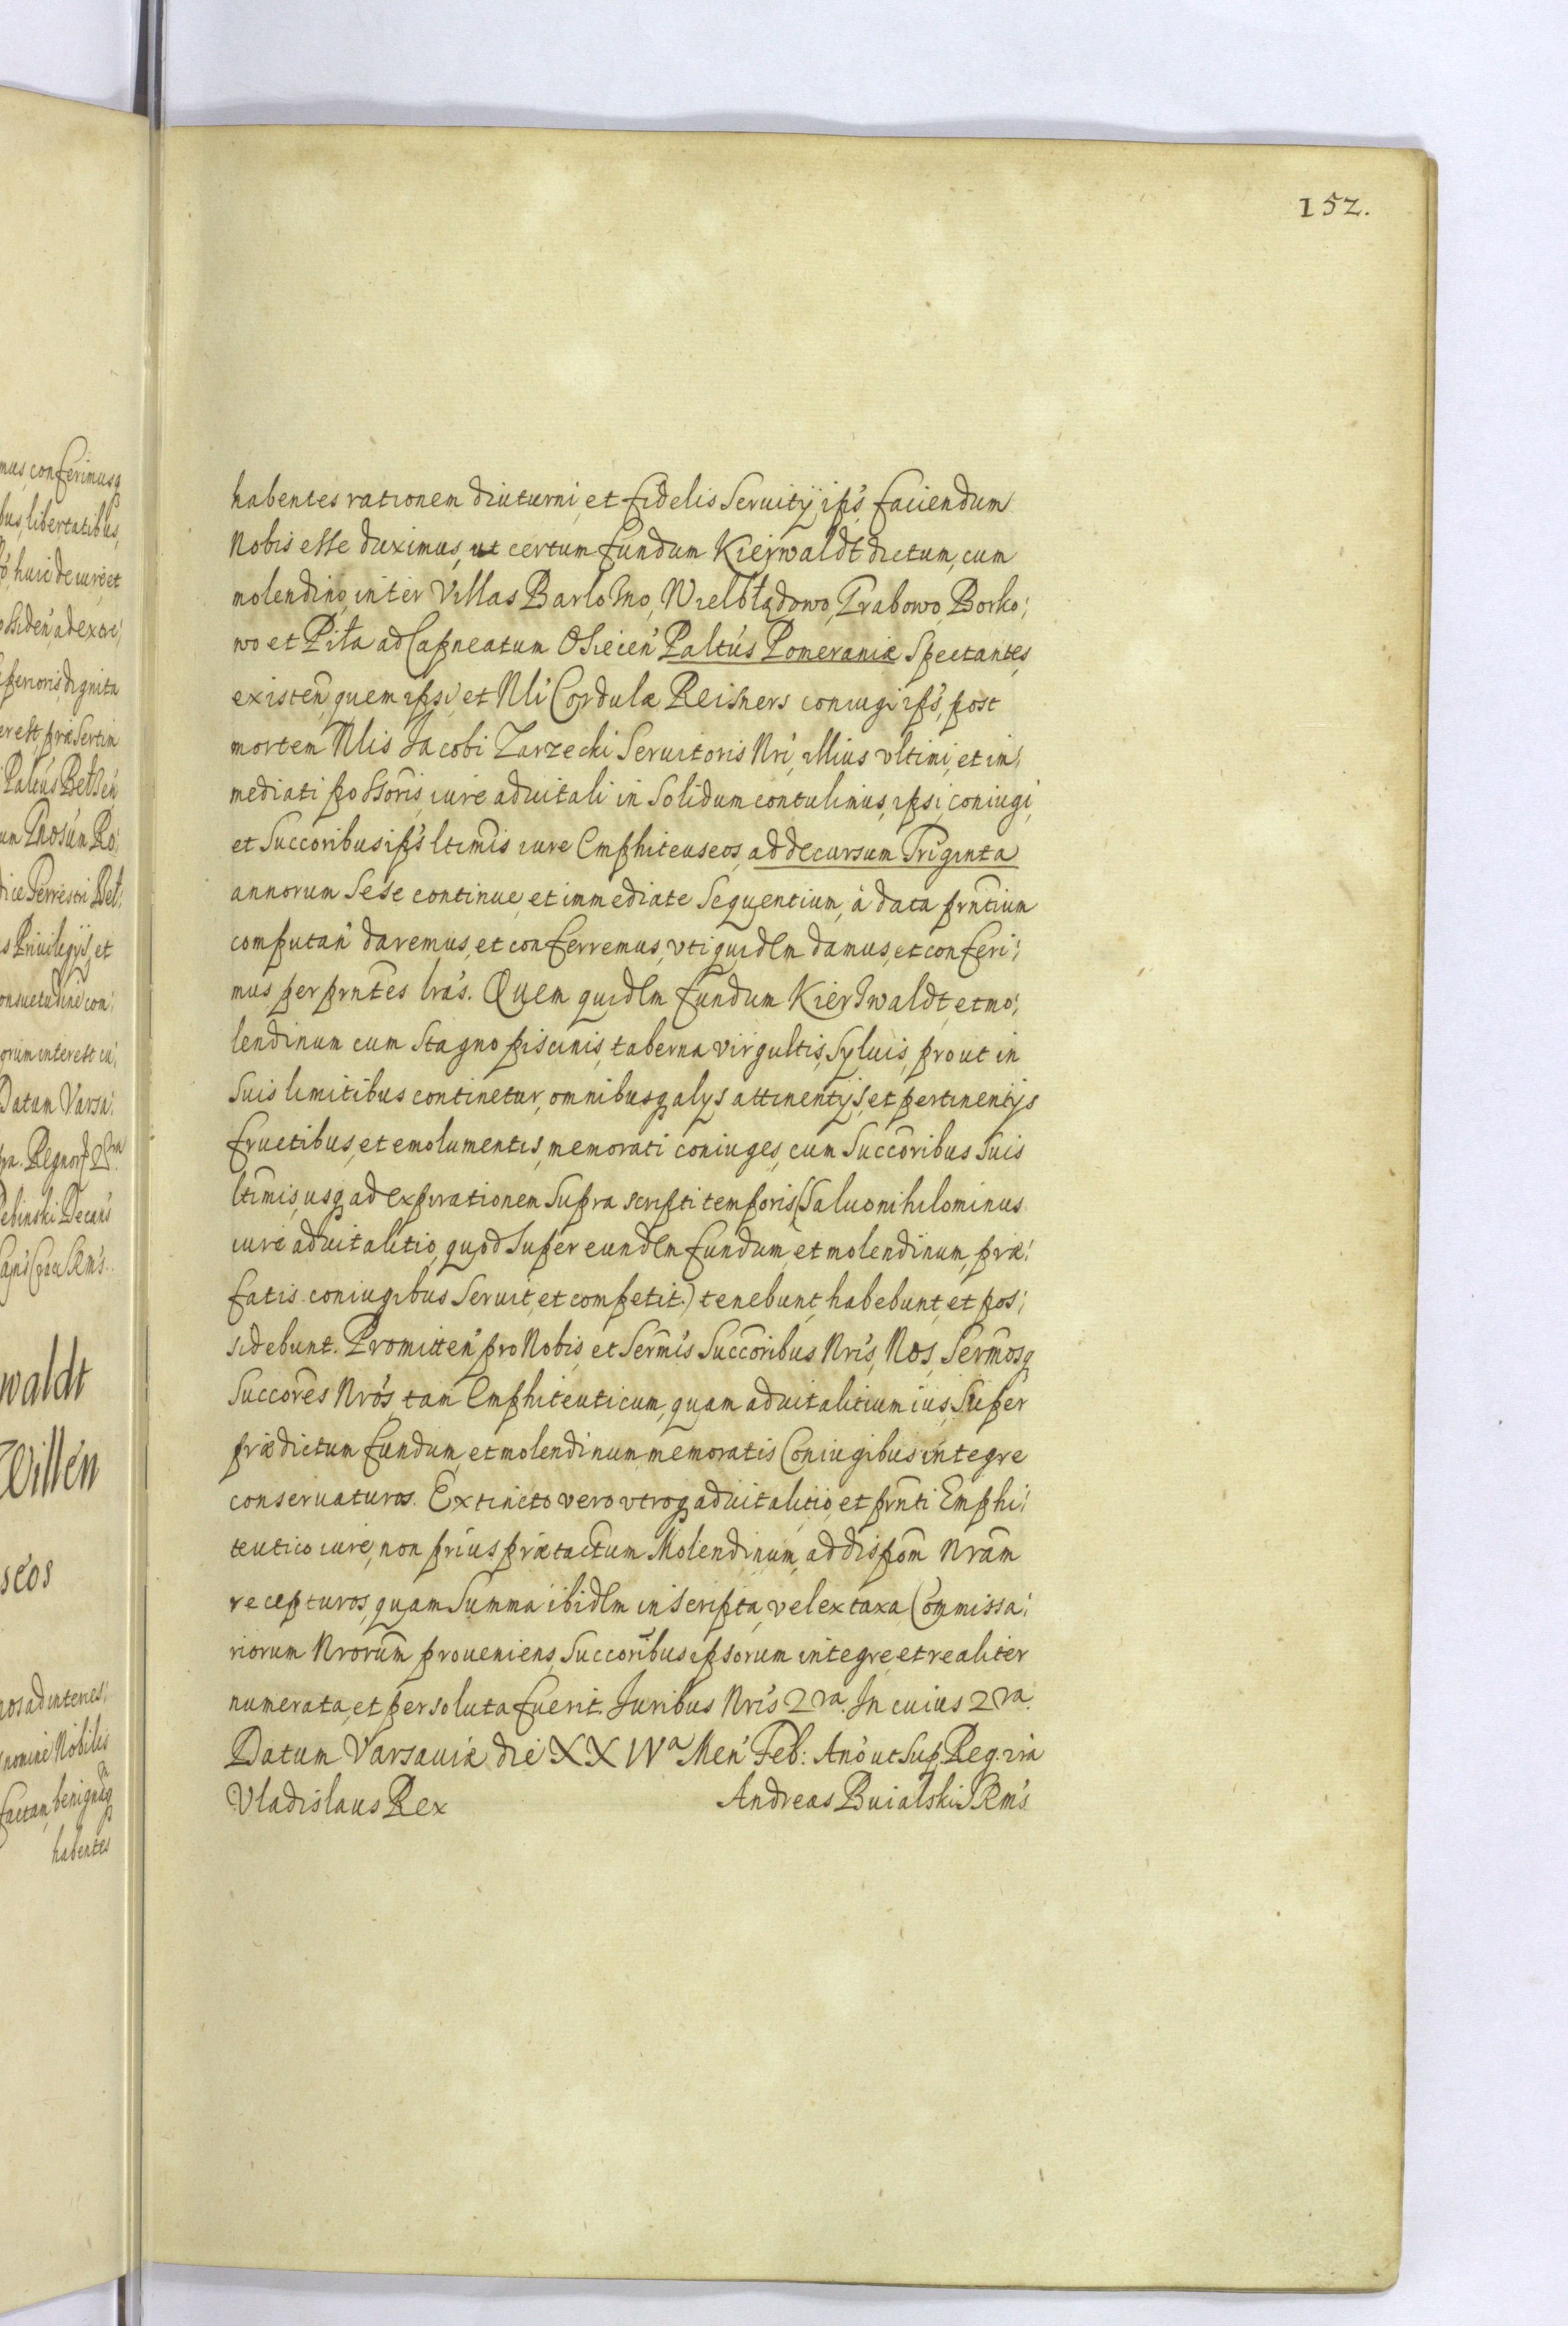 152.
habentes rationem diuturni, et fidelis Seruitÿ ips̃, faciendum
Nobis esse duximus, ut certum fundum Kierwaldt dictum, cum
molendino, inter Villas Barłożno, Wielbłądowo, Grabowo, Borko,
wo et Piła ad Capneatum Osiecen̉ Paltus Pomeraniæ Spectantes
existen̉, quem ipsi, et Nli Cordulæ Reisners coniugi ips̃, post
mortem Nlis Jacobi Zarzecki Seruitoris Nri, illius vltimi, et im,
mediati possoris, iure aduitali in Solidum contulimus, ipsi, coniugi,
et Succoribus ips̃ ltimis iure Emphiteuseos, ad decursum Triginta
annorum Sese continue, et immediate Sequentium, à data prntium
computan̉ daremus, et conferremus, vti quidem damus, et conferi,
mus per prntes lrás. Quem quidem fundum Kierswaldt, et mo,
lendinum cum Stagno piscinis, taberna virgultis, Syluis, prout in
Suis limitibus continetur, omnibusq alys attinentÿs, et pertinentÿs
fructibus, et emolumentis, memorati coniuges, cum Succoribus Suis
ltimis, usq ad expirationem Supra scripti temporis (Saluo nihilominus
iure aduitalitio, quod Super eundem fundum, et molendinum, præ,
fatis coniugibus Seruit, et competit.) tenebunt, habebunt, et pos,
sidebunt. Promitten̉ pro Nobis, et Sermis Succoribus Nris, Nos, Sermosq
Succores Nros, tam Emphiteuticum, quam aduitalitium ius, Super
prædictum fundum, et molendinum memoratis Coniugibus integre
conseruaturos. Extincto vero vtroq aduitalitio, et prnti Emphi,
teutico iure, non prius prætactum Molendinum, ad dispom Nram
recepturos, quam Summa ibidem inscripta, vel ex taxa Commissa,
riorum Nrorum proueniens, Succoribus ipsorum integre, et realiter
numerata, et persoluta fuerit. Juribus Nris 2ra. In cuius 2ra.
Datum Varsauiæ die XXIVa Men̉ Feb: Ano ut Sup. Reg. 2ra
Vladislaus Rex Andreas Buialski SRMs